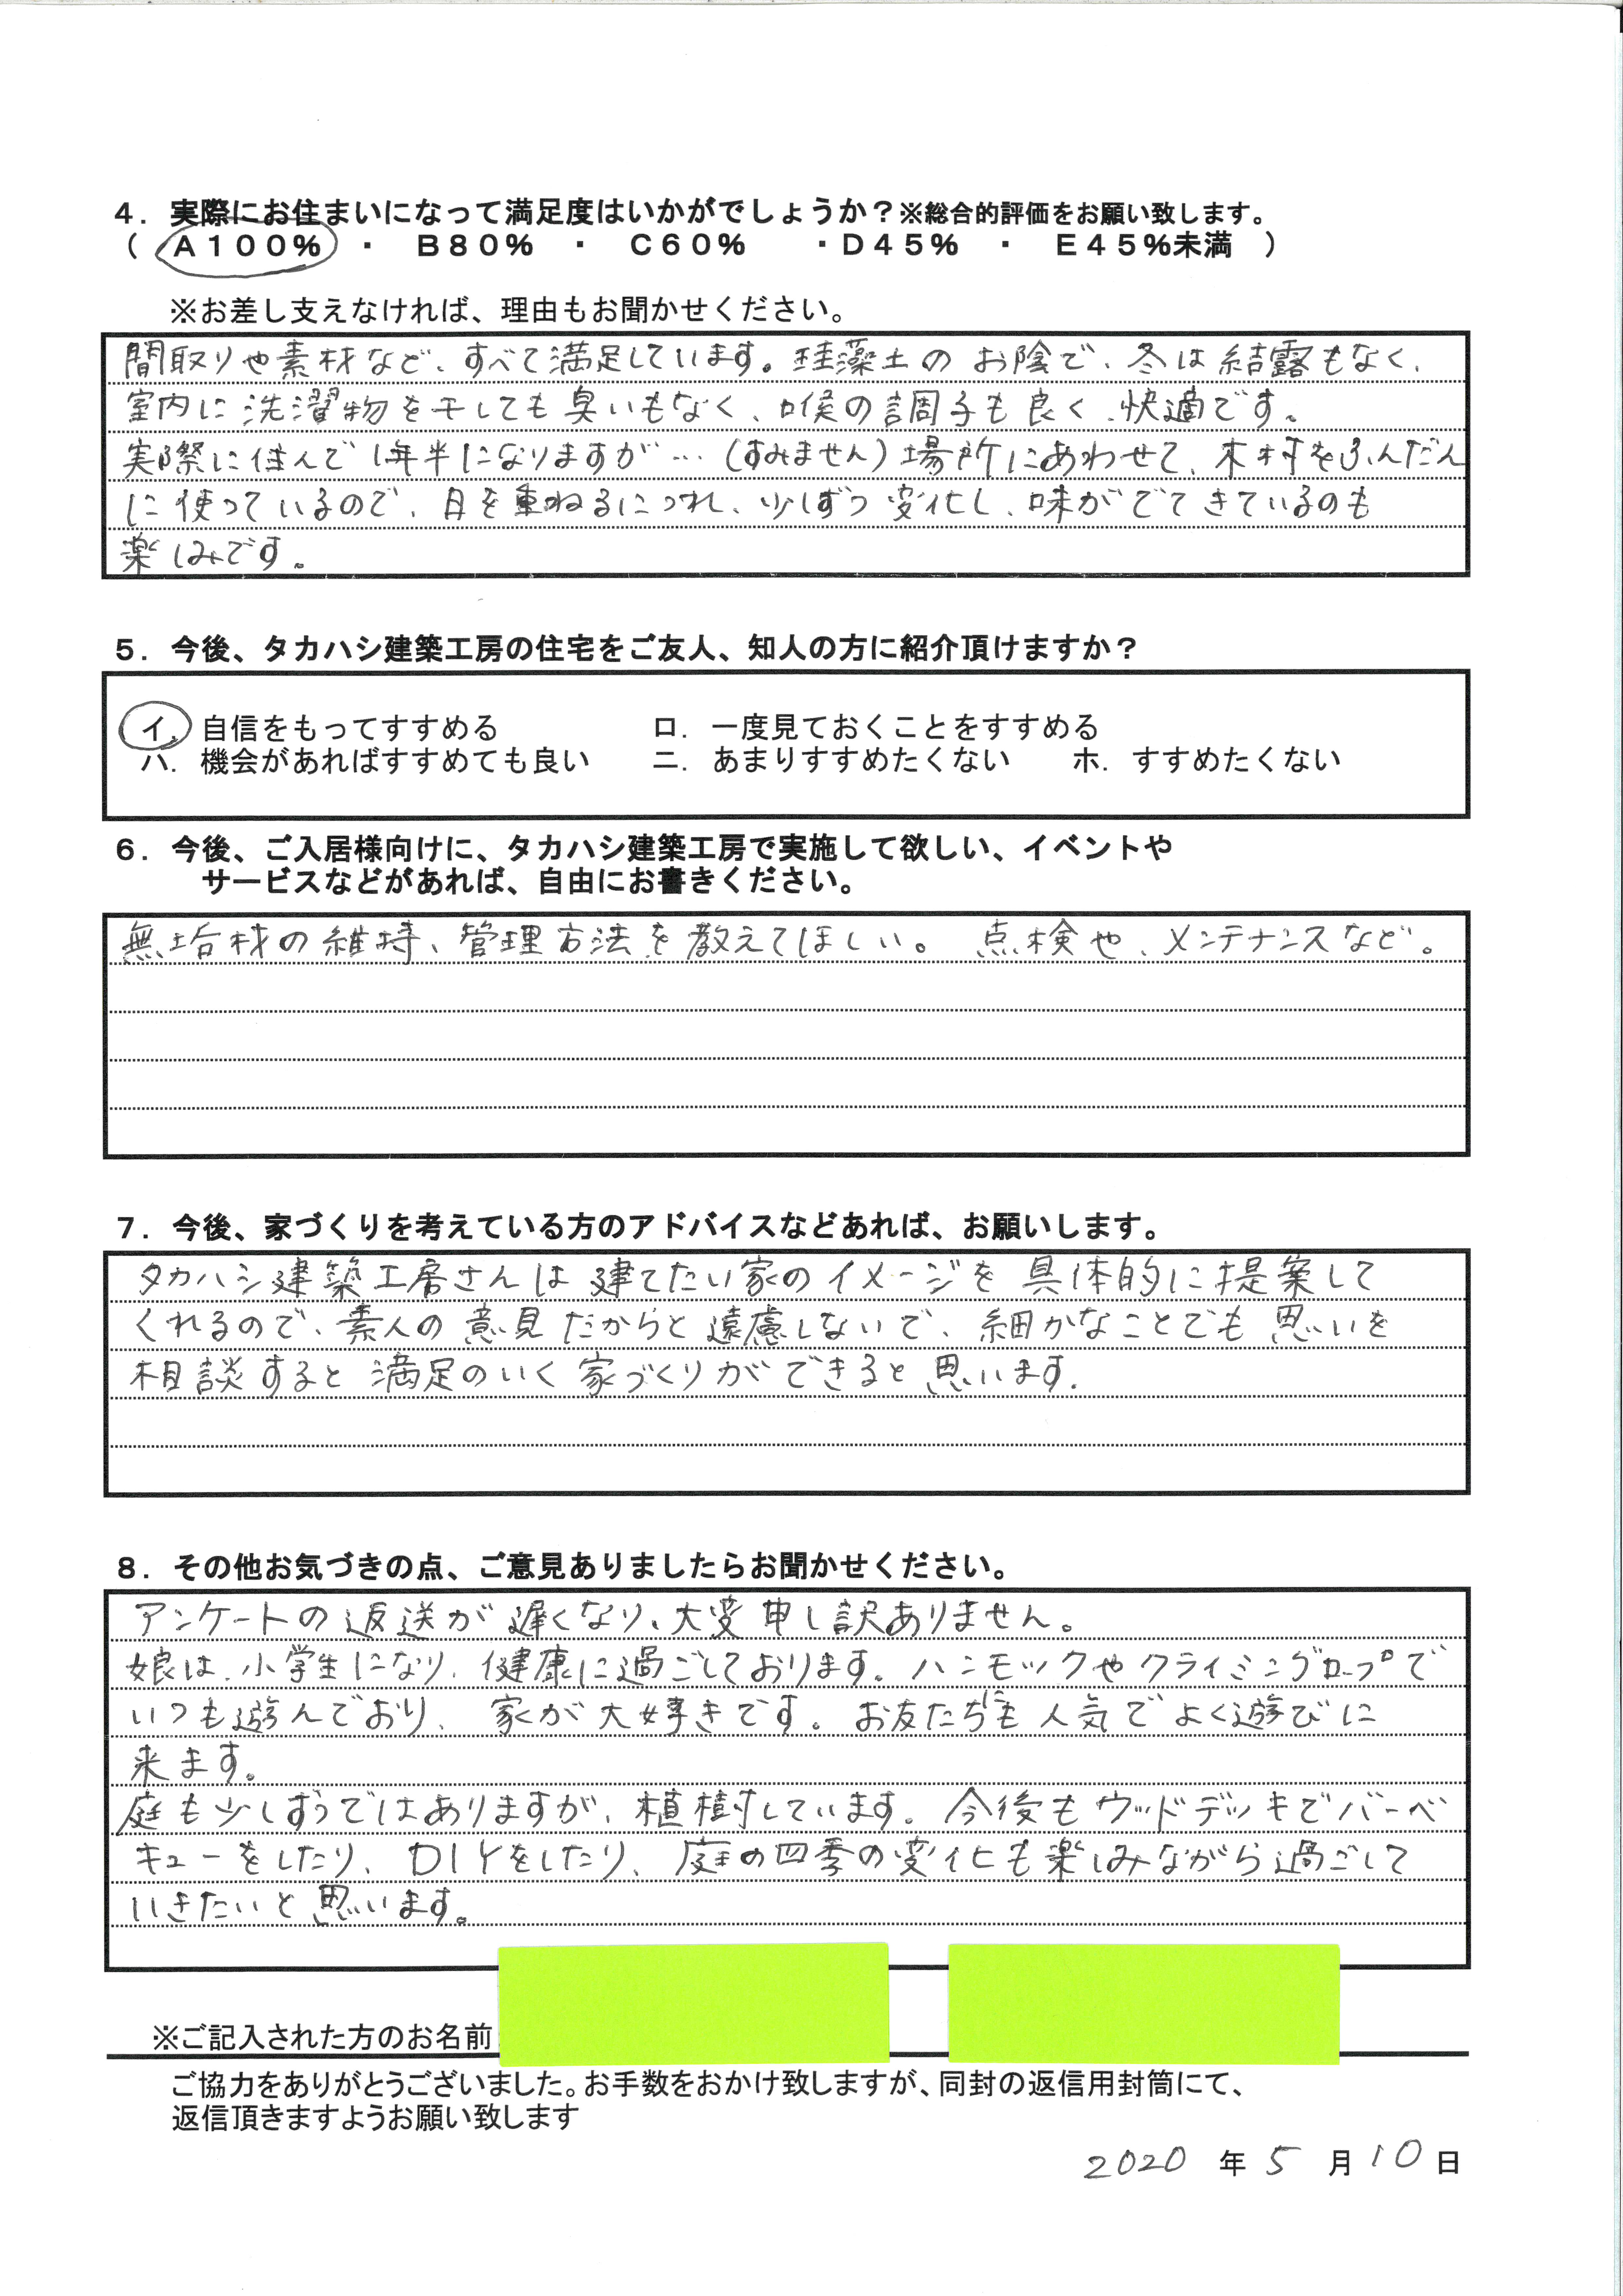 ４．実際にお住まいになって満足度はいかがでしょうか？※総合的評価をお願い致します。
（　Ａ１００％　・　Ｂ８０％　・　Ｃ６０％　・Ｄ４５％　・　Ｅ４５％未満　）
※お差し支えなければ、理由もお聞かせください。
間取りや素材など、すべて満足しています。珪藻土のお陰で、冬は結露もなく、
室内に洗濯物を干しても臭いもなく、喉の調子も良く、快適です。
実際に住んで1年半になりますが…（すみません）場所にあわせて、木材をふんだん
に使っているので、月を重ねるにつれ、少しずつ変化し、味がでてきているのも
楽しみです。
５．今後、タカハシ建築工房の住宅をご友人、知人の方に紹介頂けますか？
イ．自信をもってすすめる　ロ．一度見ておくことをすすめる
ハ．機会があればすすめても良い　ニ．あまりすすめたくない　ホ．すすめたくない
６．今後、ご入居様向けに、タカハシ建築工房で実施して欲しい、イベントや
サービスなどがあれば、自由にお書きください。
無垢材の維持、管理方法を教えてほしい。　点検や、メンテナンスなど。
７．今後、家づくりを考えている方のアドバイスなどあれば、お願いします。
タカハシ建築工房さんは建てたい家のイメージを具体的に提案して
くれるので、素人の意見だからと遠慮しないで、細かなことでも思いを
相談すると満足のいく家づくりができると思います。
８．その他お気づきの点、ご意見ありましたらお聞かせください。
アンケートの返送が遅くなり、大変申し訳ありません。
娘は、小学生になり、健康に過ごしております。ハンモックやクライミングロープで
いつも遊んでおり、家が大好きです。お友だちにも人気でよく遊びに
来ます。
庭も少しずつではありますが、植樹しています。今後もウッドデッキでバーベ
キューをしたり、DIYをしたり、庭の四季の変化も楽しみながら過ごして
いきたいと思います。
※ご記入された方のお名前
ご協力をありがとうございました。お手数をおかけ致しますが、同封の返信用封筒にて、
返信頂きますようお願い致します
2020 年 5 月 10 日